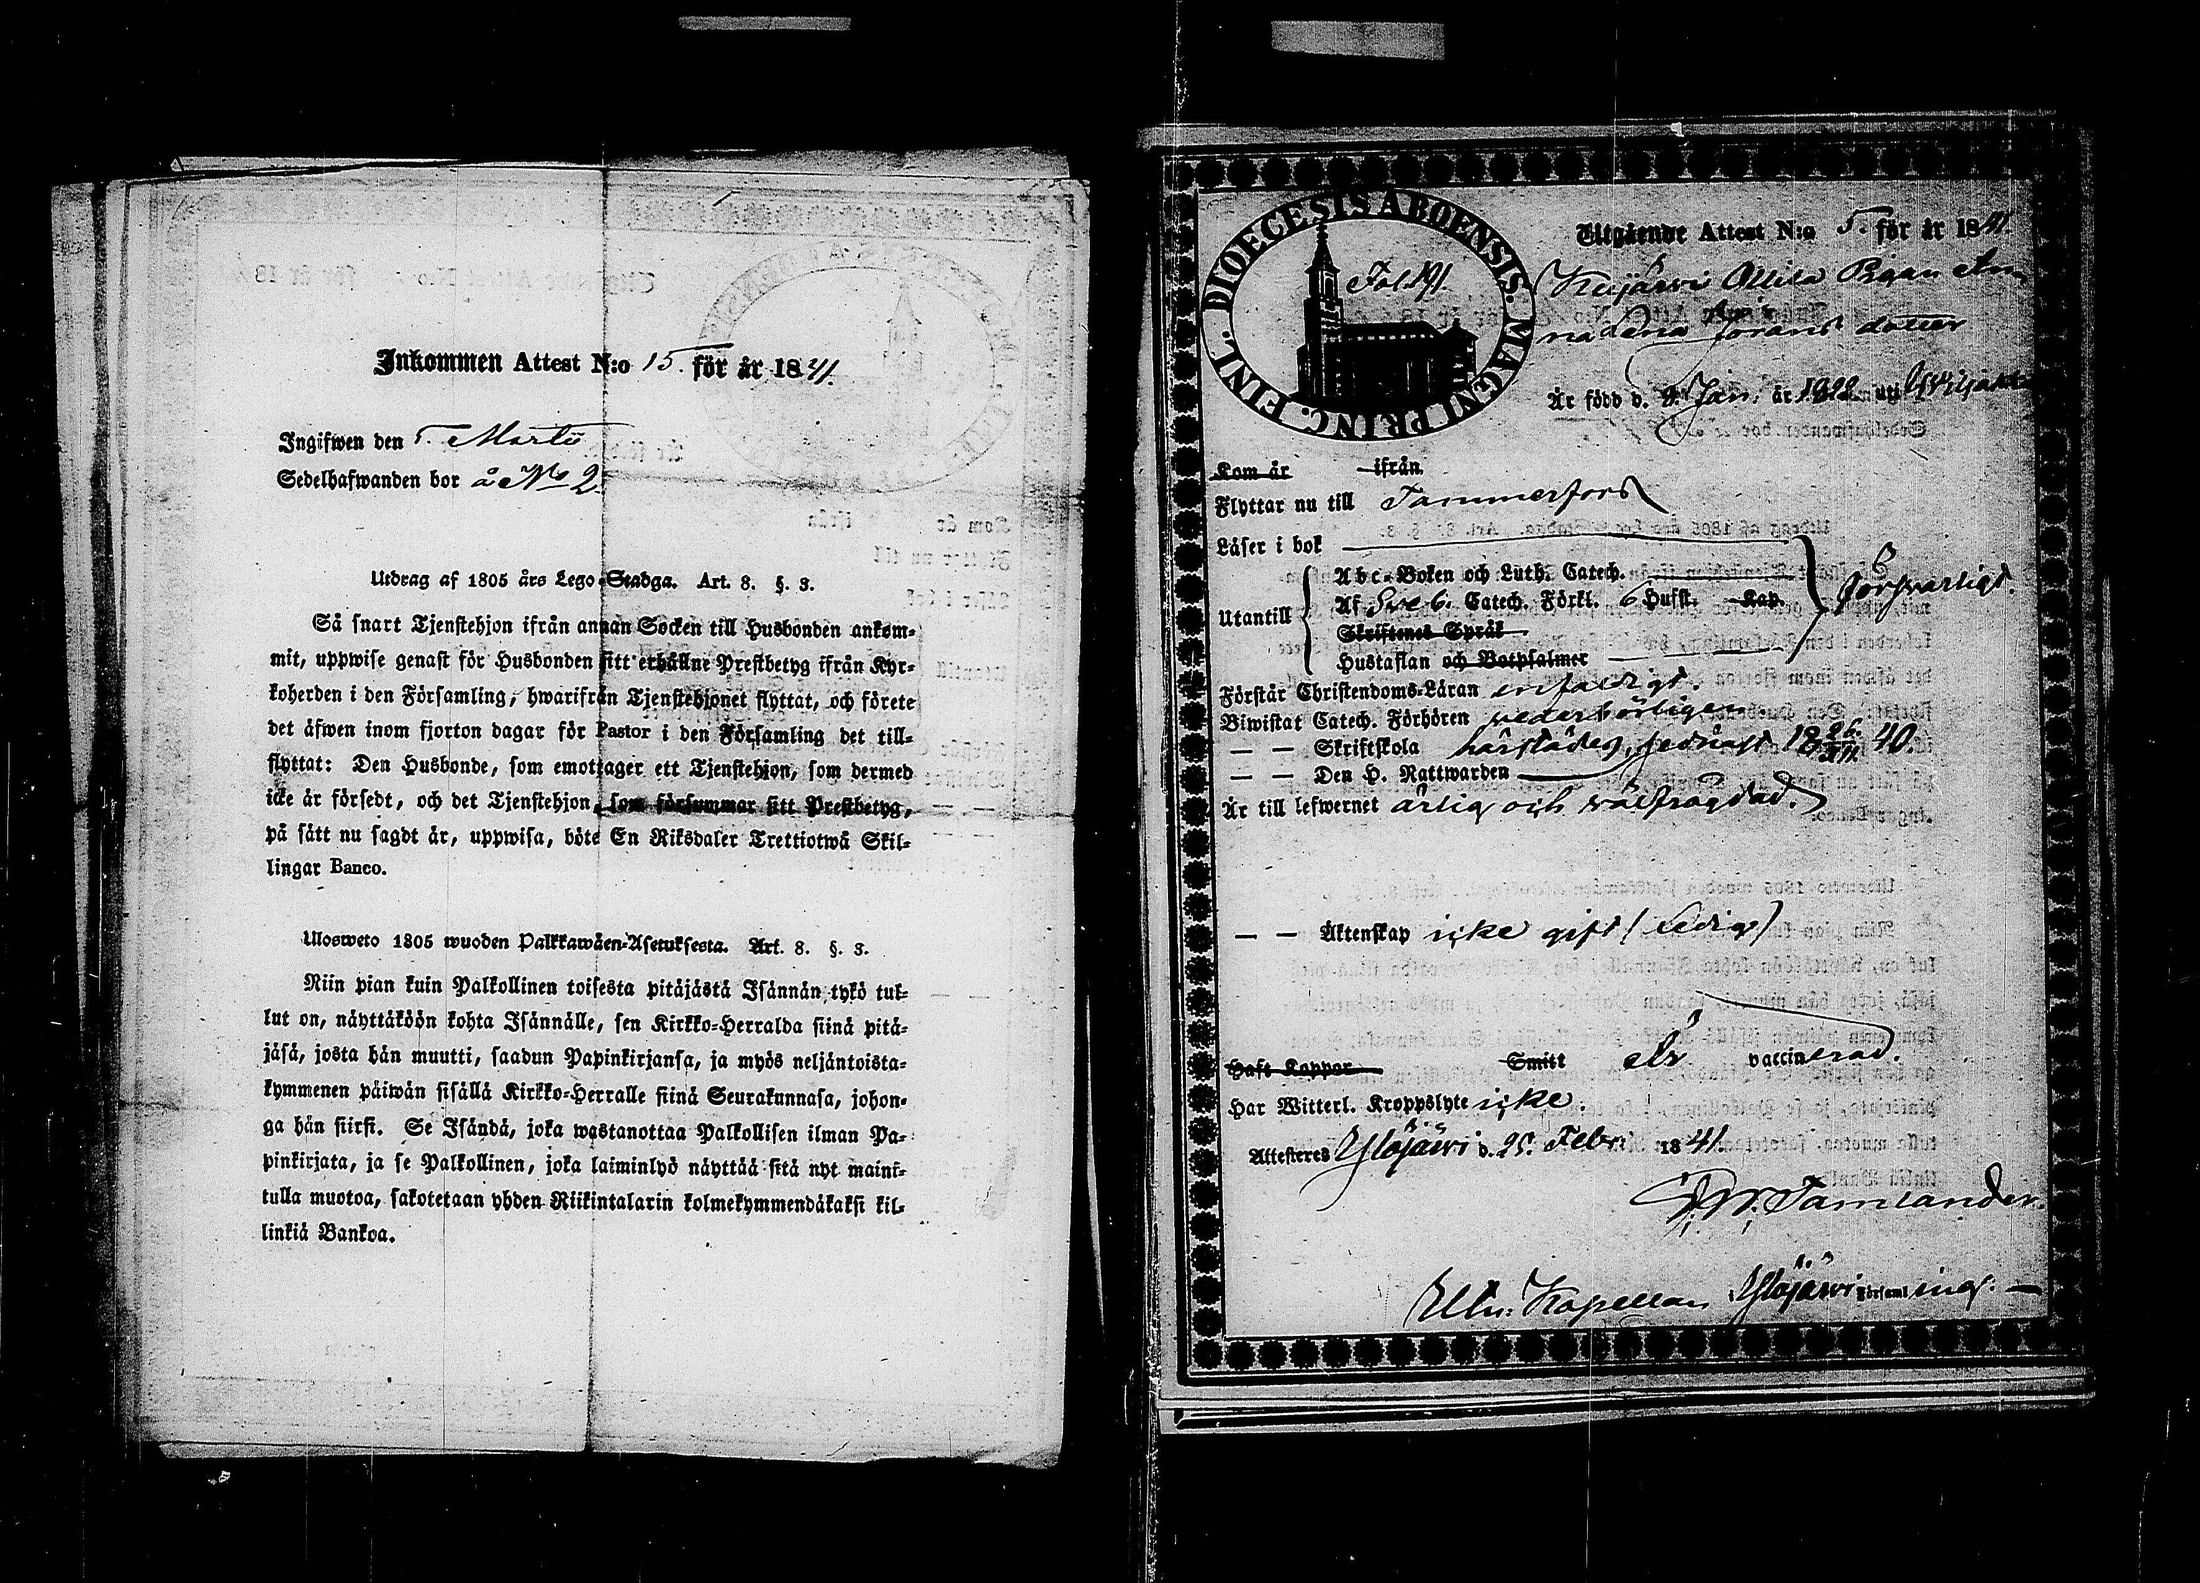 Inkommen Attest N:o 15. för år 1841.
Ingifwen den 5. Martii
Sedelhafwanden bor å No 2.
Utdrag af 1805 års Lego-Stadga. Art. 8. §. 3.
Så snart Tjenstehjon ifrån annan Socken till Husbonden ankom-
mit, uppwise genast för Husbonden sitt erhållne Prestbetyg ifrån Kyr-
koherden i den Församling, hwarifrån Tjenstehjonet flyttat, och förete
det äfwen inom fjorton dagar för Pastor i den Församling det till-
flyttat: Den Husbonde, som emottager ett Tjenstehjon, som dermed
icke är försedt, och det Tjenstehjon, som försummar sitt Prestbetyg,
på sätt nu sagdt är, uppwisa, böte En Riksdaler Trettiotwå Skil-
lingar Banco.
Ulosweto 1805 wuoden Palkkawäen-Asetuksesta. Art. 8. §. 3.
Niin pian kuin Palkollinen toisesta pitäjästä Isännän tykö tul-
lut on, näyttäköön kohta Isännälle, sen Kirkko-Herralda siinä pitä-
jäsä, josta hän muutti, saadun Papinkirjansa, ja myös neljäntoista-
kymmenen päiwän sisällä Kirkko-Herralle siinä Seurakunnasa, johon-
ga hän siirsi. Se Isändä, joka wastanottaa Palkollisen ilman Pa-
pinkirjata, ja se Palkollinen, joka laiminlyö näyttää sitä nyt maini-
tulla muotoa, sakotetaan yhden Riikintalarin kolmekymmendäkaksi kil-
linkiä Bankoa.
DIOECESIS ABOENSIS. MAGNI PRINC. FINL.
Fol. 191.
Utgående Attest N:o 5. för år 1841.
Keijärvi Ollila Pigan An
na Lena Jörans dotter
Är född d. 9. Jan. år 1822. uti
Kom år ifrån
Flyttar nu till Tammerfors
Läser i bok
Utantill
Abc-Boken och Luth. Catech.
Af Sveb. Catech. Förkl. 6 Hufst. Kap.
Skriftenes Språk
Hustaflan och Botpsalmer
försvarligt.
Förstår Christendoms-Läran enfaldigt.
Biwistat Catech. Förhören vederbörligen
— — Skriftskola härstädes, sednast 18 26/XII 40.
— — Den H. Nattwarden
Är till lefwernet ärlig och välfrägdad.
— — Äktenskap icke gift (Ledig)
Haft Koppor Smitt Är vaccinerad.
Har Witterl. Kroppslyte icke.
Attesteras Ylöjärvi d. 25. Febr. 1841.
Tamlander.
Kapellan i Ylöjärvi Församl ings. —